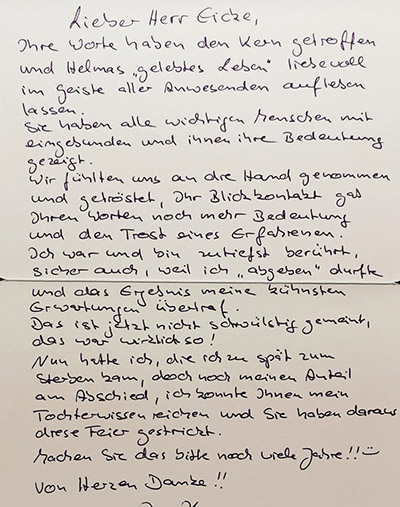 Lieber Herr Eicke,
Ihre Worte haben den Kern getroffen
und Helmas „gelebtes Leben" liebevoll
im Geiste aller Anwesenden aufleben
lassen.
Sie haben alle wichtigen Menschen mit
eingebunden und ihnen ihre Bedeutung
gezeigt.
Wir fühlten uns an die Hand genommen
und getröstet, Ihr Blickkontakt gab
Ihren Worten noch mehr Bedeutung
und den Trost eines Erfahrenen.
Ich war und bin zutiefst berührt,
sicher auch, weil ich „abgeben" durfte
und das Ergebnis meine kühnsten
Erwartungen übertraf.
Das ist jetzt nicht schwülstig gemeint,
das war wirklich so!
Nun hatte ich, die ich zu spät zum
Sterben kam, doch noch meinen Anteil
am Abschied, ich konnte Ihnen mein
Tochterwissen reichen und Sie haben daraus
diese Feier gestrickt.
Machen Sie das bitte noch viele Jahre!!
Von Herzen Danke!!